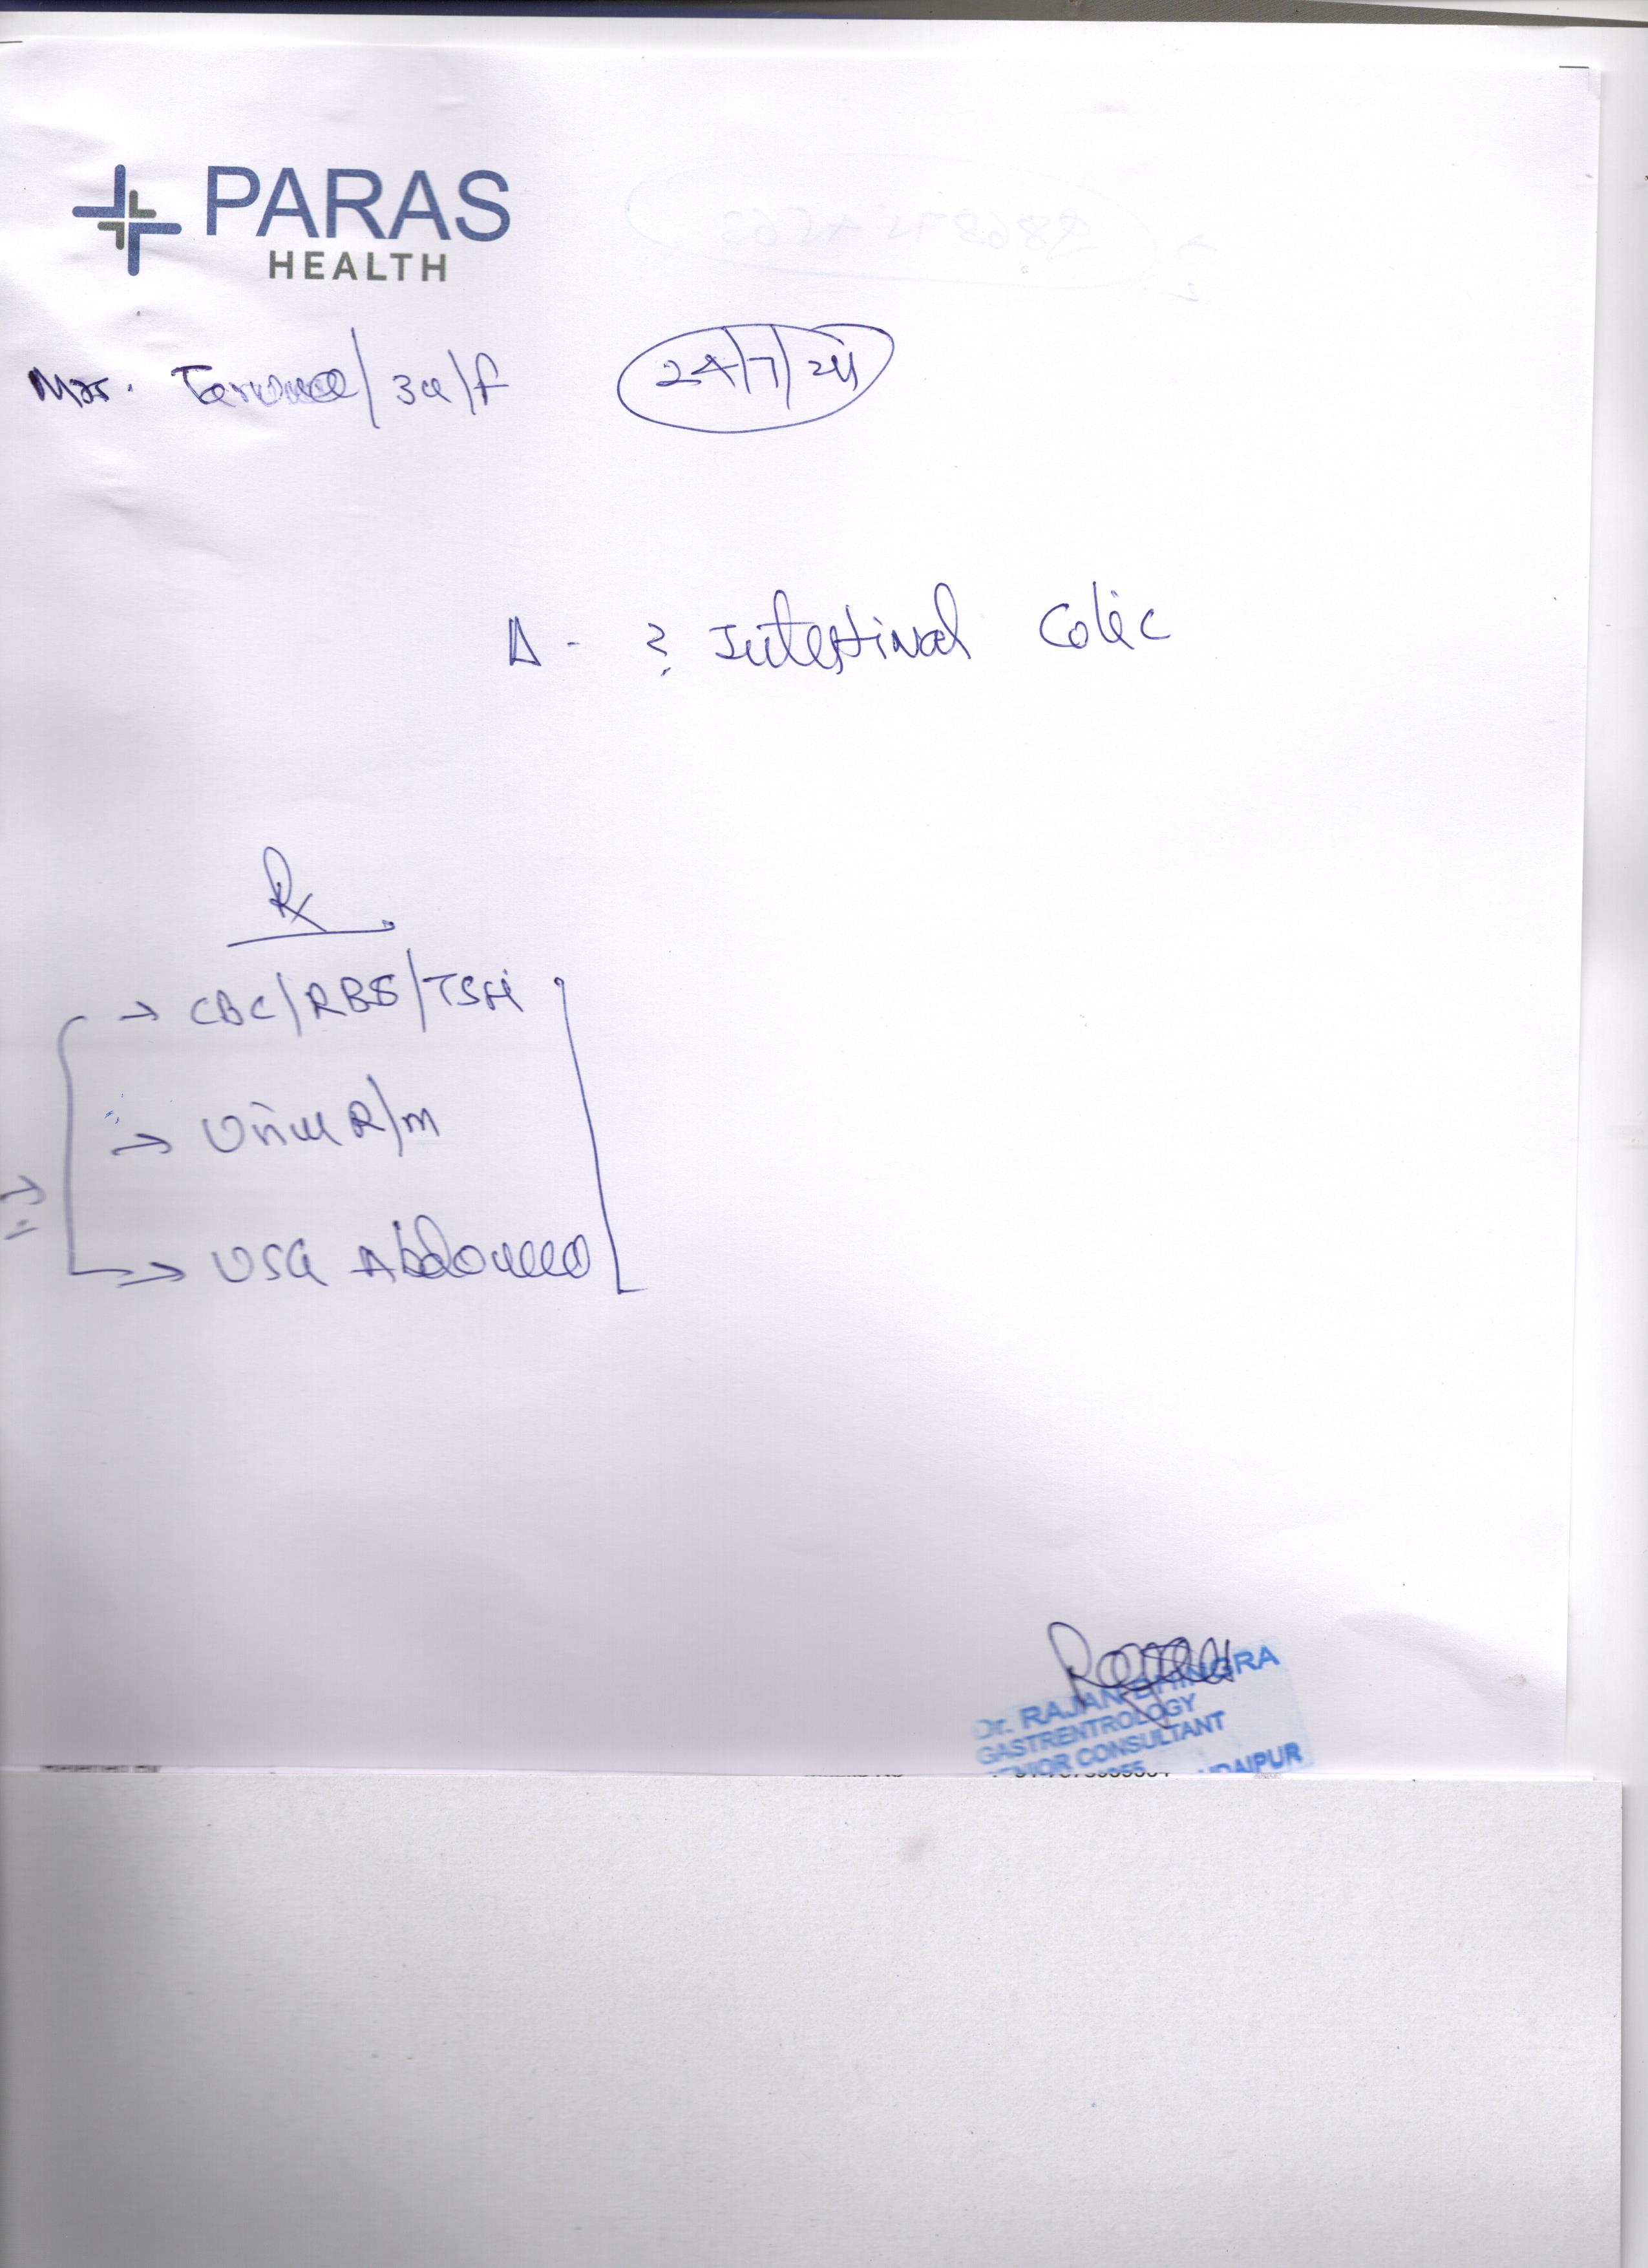 PARAS
HEALTH
Mrs. /34/f 24/7/24
Δ - ? Intestinal Colic
Rx
→ CBC/RBS/TSH
→ Urine R/m
→ USG Abdomen
Dr. RAJAN DHINGRA
GASTRENTROLOGY
SENIOR CONSULTANT
UDAIPUR